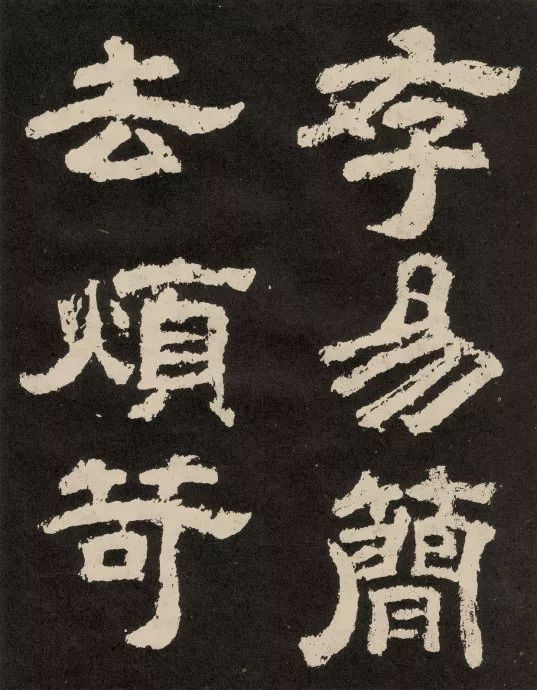 存易簡
去煩苛